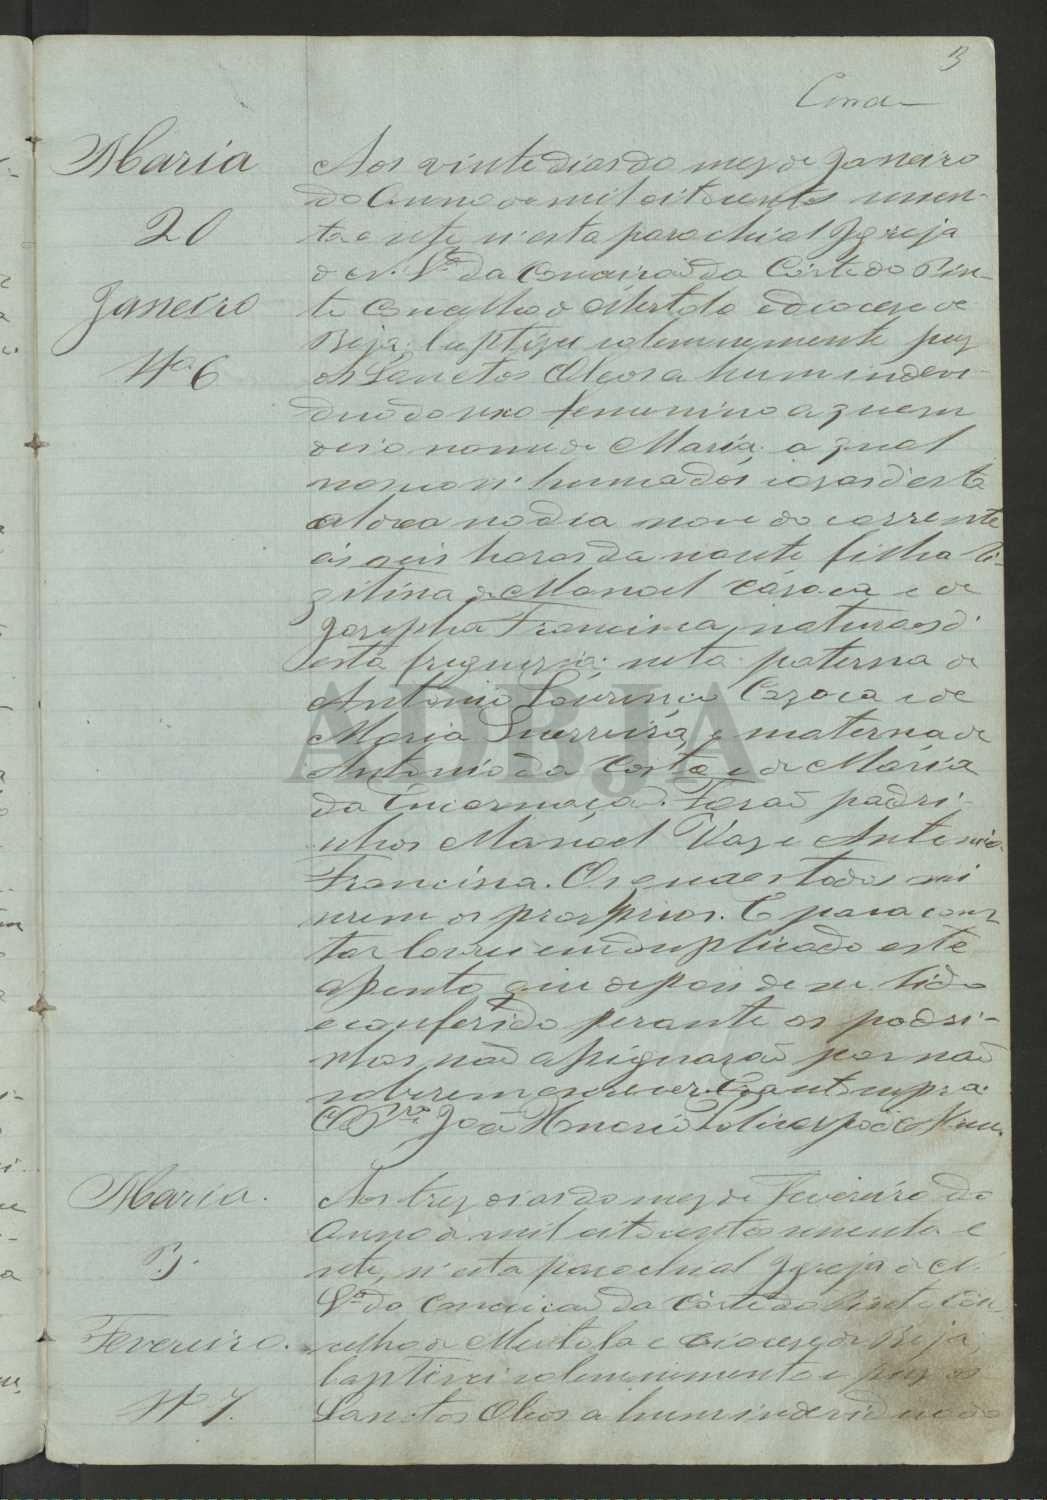 3
Maria
20
Janeiro
Nº 6
Aos vinte dias do mez de Janeiro
do Anno de mil oitocentos sessen-
ta e sete n'esta parochial Igreja
de N. Sª da Conceição da Côrte do Pin-
to Concelho de Mertola e diocese de
Beja, baptizei solemnemente e puz
os Sanctos Oleos a hum indevi-
duo do sexo femenino a quem
dei o nome de Maria, a qual
nasceo n'huma das casas d'esta
aldea no dia nove do corrente
ás seis horas da noute filha li-
gitima de Manoel Cároca e de
Josepha Francisca, naturaes d'
esta freguezia: neta paterna de
Antonio Lourenço Caroca e de
Maria Guerreira, e materna de
Antonio da Costa e de Maria
da Encarnação. Forão padri-
nhos Manoel Vaz e Antonia
Francisca. Os quaes todos sei
serem os proprios. E para cons
tar lavrei em duplicado este
aſsento, que depois de ser lido
e conferido perante os padri-
nhos não aſsignarão por não
saberem escrever. Era ut supra.
O João Honorio Policarpo
ADBJA
Maria.
3.
Fevereiro.
Nº 7.
Aos trez dias do mez de Fevereiro do
Anno de mil oitocentos sessenta e
sete, n'esta parochial Igreja de N.
Sª da Conceição da Côrte do Pinto Con-
celho de Mertola e diocese de Beja,
baptizei solemnemente e puz os
Sanctos Oleos a hum individuo do